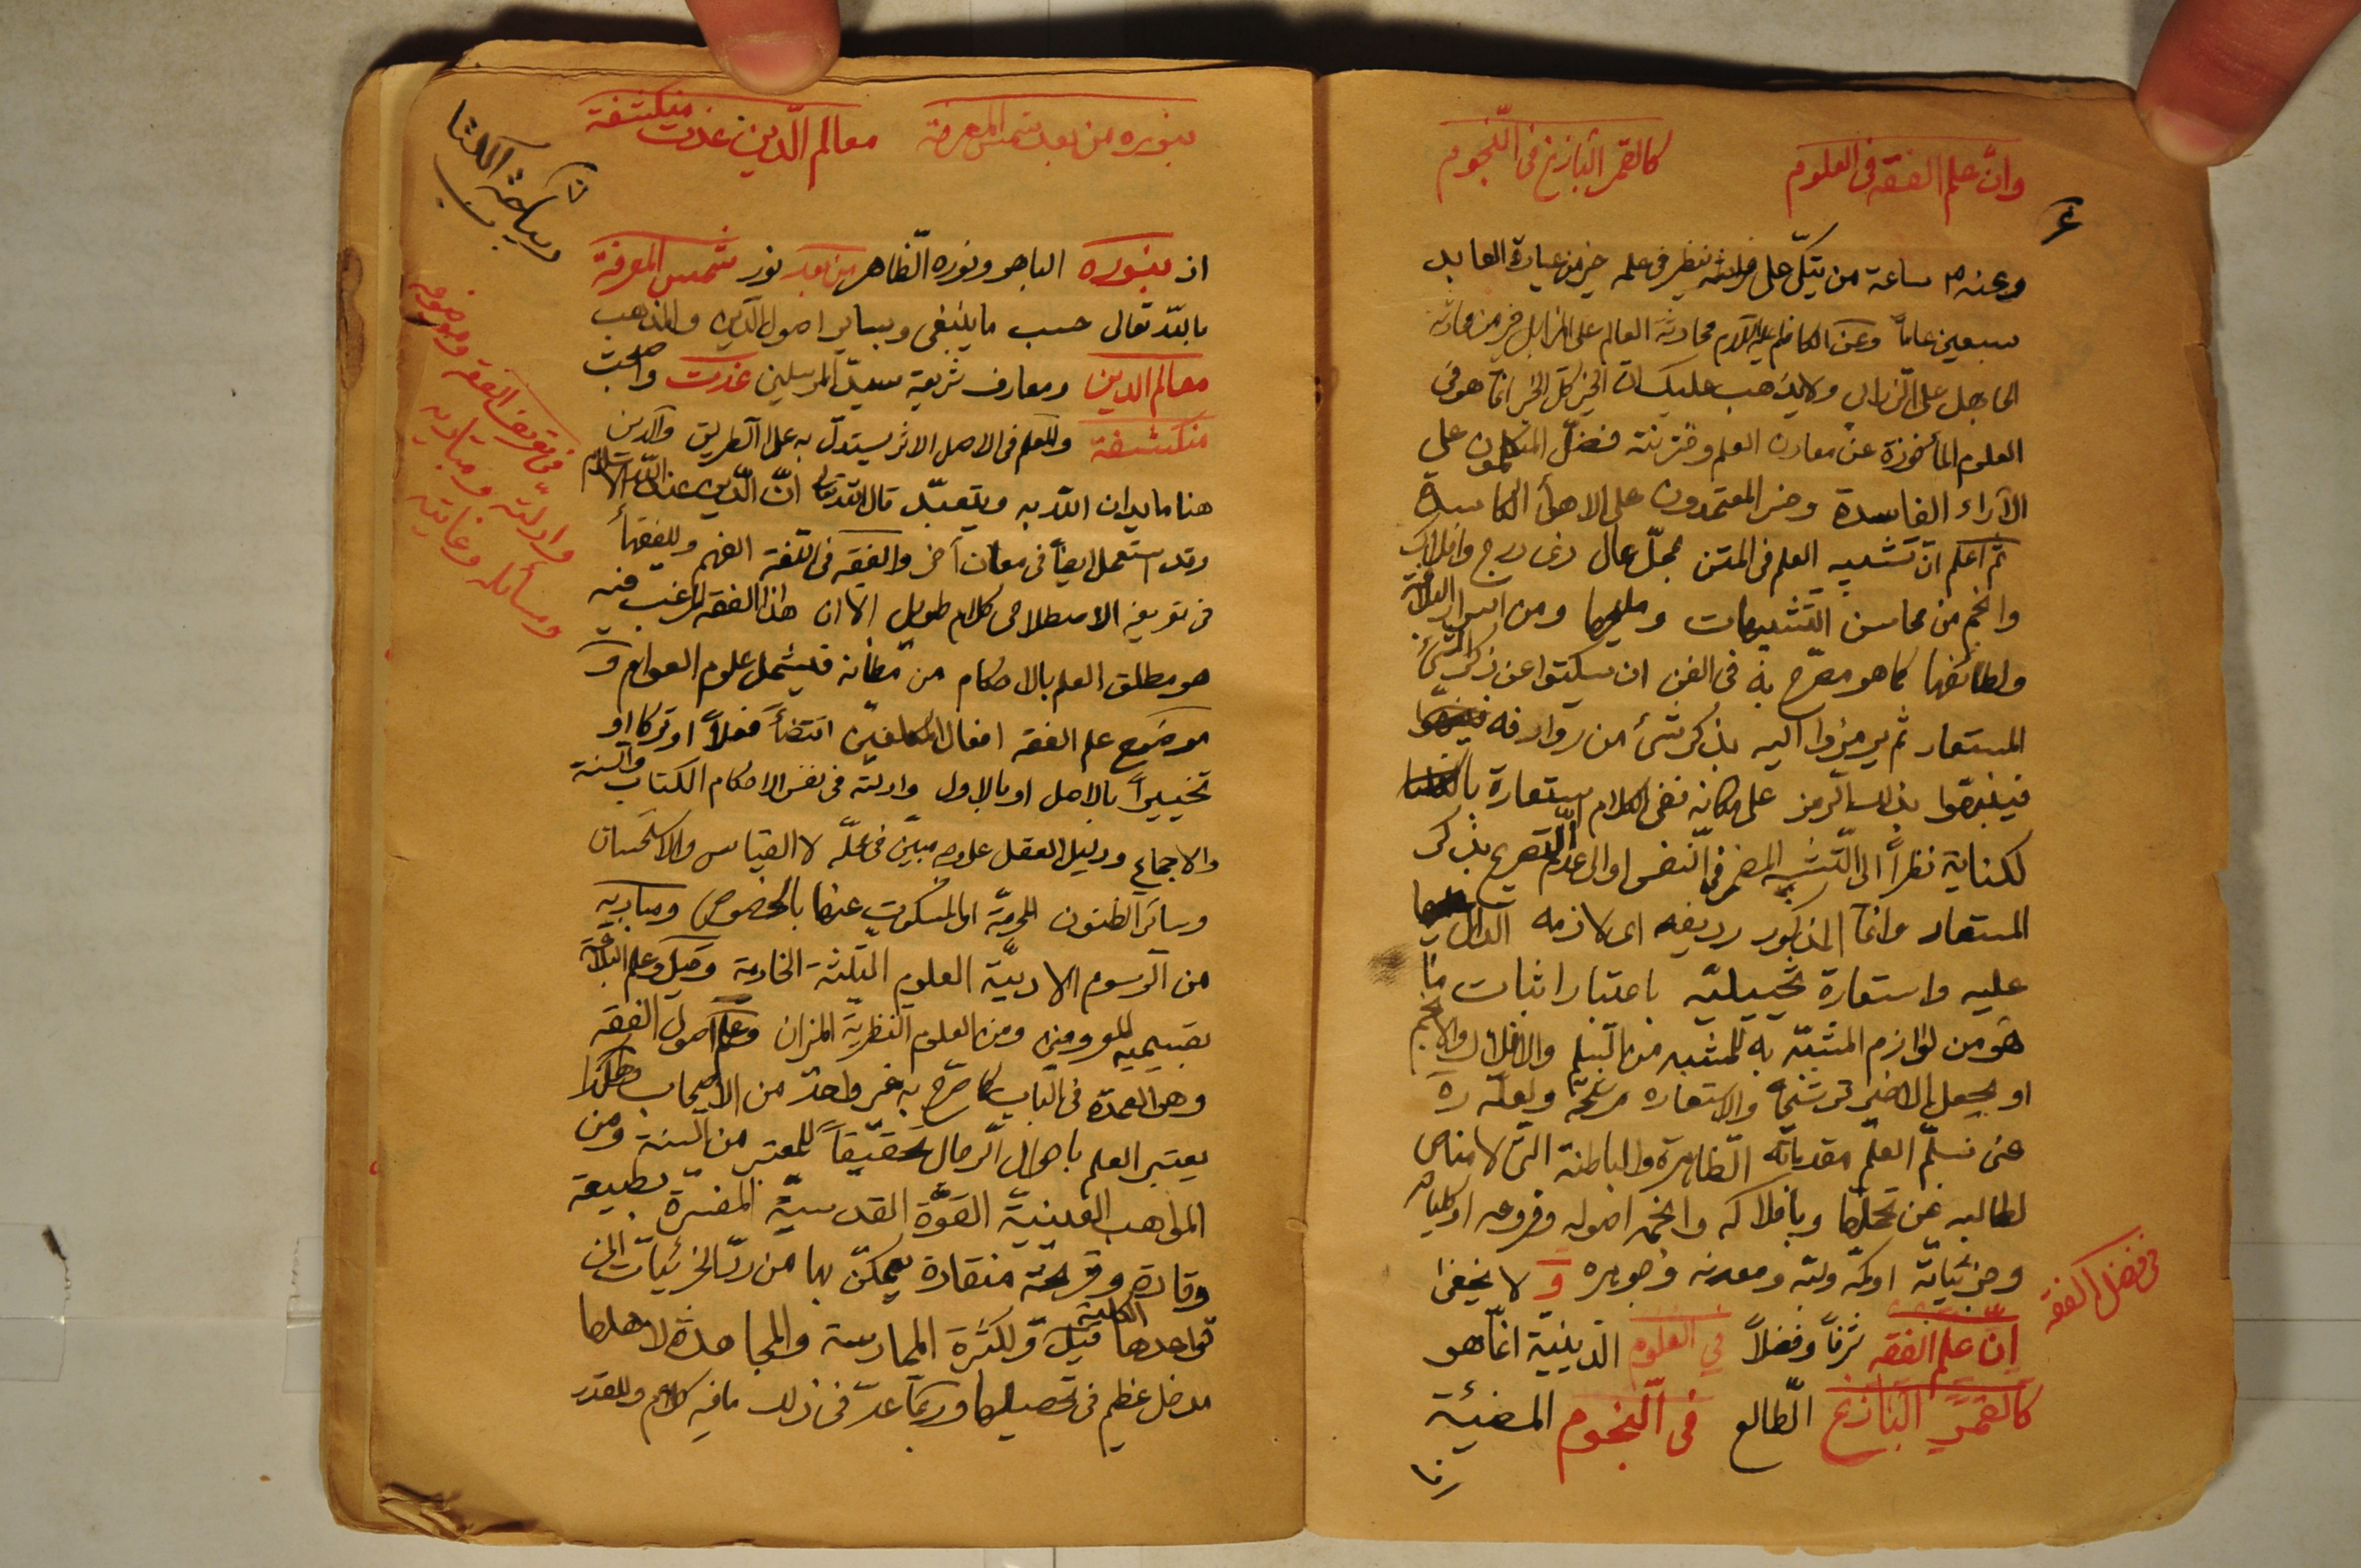 وانّ علم الفقه فى العلوم كالقمر البازغ فى النّجوم
وعنه ٣ ساعة من يتكّى على فراشه ينظر فى علمه خير من عبادة العابد
سبعين عاماً وعن الكاظم عليه السلام محادثة العالم على المزابل خير من محادثة
الجاهل على الزرابى ولا يذهب عليك ان الخير كلّ الخير انّما هو فى
العلوم المأخوذة عن معادن العلم وخزنته فضلّ المتكلمون على
الآراء الفاسدة وخسر المعتمدون على الاهوأ الكاسدة
ثم اعلم انّ تشبيه العلم فى المتن بمحلّ عال ذى درج وافلاك
وانجم من محاسن التشبيهات ومليحها ومن اسرار البلاغة
ولطائفها كما هو مصرّح به فى الفن ان يسكتوا عن ذكر الشئ
المستعار ثم يرمزوا اليه بذكر شئ من روادفه
فينبهوا بذلك الرمز على مكانه ففى الكلام استعارة
لكناية نظراً الى التشبيه المضمر فى النفس او الى عدم التصريح بذكر
المستعار وانما المذكور رديفه اى لازمه الدال
عليه واستعارة تخييليّه باعتبار اثبات ما
هو من لوازم المشبّه به للمشبه من السّلم والافلاك والانجم
او بجعل الاخير ترشيحاً والاستعارة مرشحة ولعلّه ره
عنى بسلّم العلم مقدماته الظاهرة والباطنة التى لا مناص
لطالبه عن تحملها وبافلاكه وانجمه اصوله وفروعه او كلياته
وجزئياته او كمّه وليّه ومعدنه وجوهره و لا يخفى
انّ علم الفقه شرفاً وفضلاً فى العلوم الدّينيّة انّما هو
كالقمر البازغ الطّالع فى النّجوم المضيئة
فى فضل الفقه
بنوره من بعد شمس المعرفة معالم الدّين غدت منكشفة
ديباجة الكتاب
اذ بنوره الباهر ونوره الظاهر من بعد نور شمس المعرفة
بالله تعالى حسب ما ينبغى وبساير اصول الدين والمذهب
معالم الدين ومعارف شريعة سيد المرسلين غدت واضحت
منكشفة والمعلم فى الاصل الاثر يستدلّ به على الطريق والدين
هنا ما يدان الله به ويتعبّد قال الله تعالى انّ الدّين عند الله الاسلام
وقد استعمل ايضاً فى معان آخر والفقه فى اللغة الفهم وللفقهأ
فى تعريفه الاصطلاحى كلام طويل الا ان هذا الفقه المرغب فيه
هو مطلق العلم بالاحكام من مظانه فيشمل علوم العوام و
موضوع علم الفقه افعال المكلفين اقتضاءً فعلاً او تركا او
تخييراً بالاصل او بالاول وادلته فى نفس الاحكام الكتاب والسنة
والاجماع ودليل العقل على وجه مبيّن فى محلّه لا القياس والاستحسان
وسائر الظنون المحرمة او المسكوت عنها بالخصوص ومباديه
من الرسوم الادبيّة العلوم الثلثة الخادمة وقيل وعلم البلاغة
بقسيميه المعروفين ومن العلوم النظرية الميزان وعلم اصول الفقه
وهى العمدة فى الباب كما صرّح به غير واحد من الاصحاب وهكذا
يعتبر العلم باحوال الرجال تحقيقاً للمعتبر من السنة ومن
المواهب الغيبيّة القوّة القدسيّة المفسّرة بطبيعة
وقادة وقريحة منقادة يتمكّن بها من ردّ الجزئيات الى
قواعدها الكلية قيل ولكثرة الممارسة والمجاهدة لاهلها
مدخل عظيم فى تحصيلها وربما عدّ فى ذلك ما فيه كلام وللقدر
فى تعريف الفقه وموضوعه
وادلّته ومباديه
ومسائله وغايته